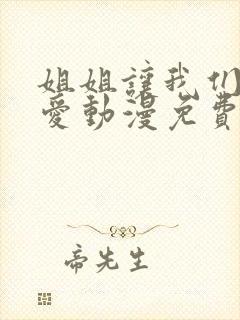 姐姐讓我们
愛動漫免費
帝先生